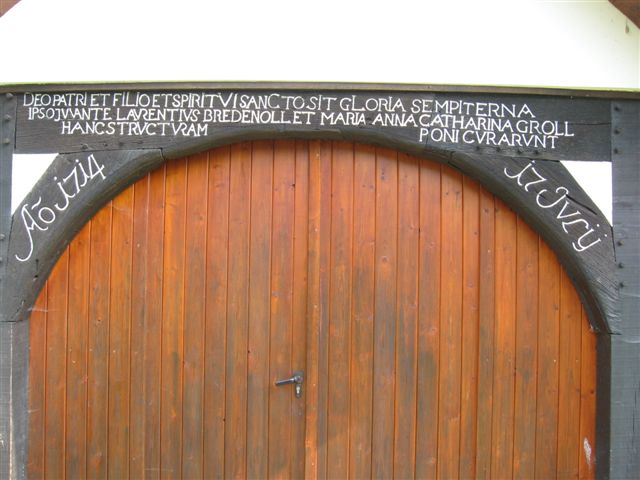 DEO PATRI ET FILIO ET SPIRITVI SANCTO SIT GLORIA SEMPITERNA
IPSO JUVANTE LAVRENTIVS BREDENOLL ET MARIA ANNA CATHARINA GROLL
HANC STRVCTVRAM PONI CVRARVNT
Aõ 1714
17 Jurÿ